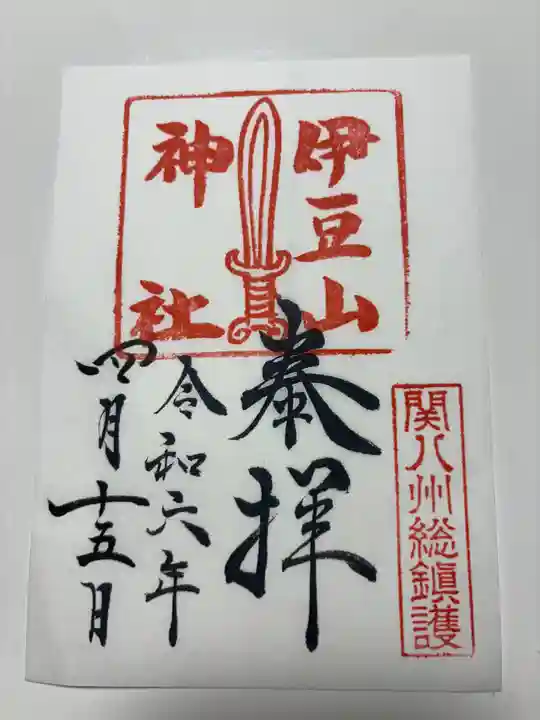 伊豆山
神社
関八州総鎮護
奉拝
令和六年
四月十五日